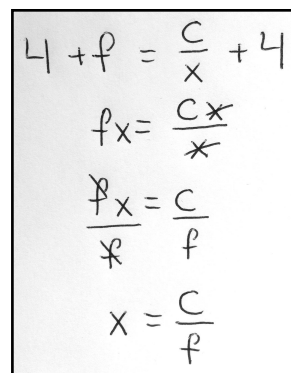 4 + f = c/x + 4
fx = cx/x
fx/f = c/f
x = c/f